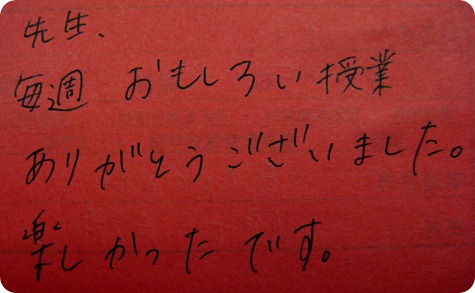 先生、
毎週 おもしろい授業
ありがとうございました。
楽しかったです。